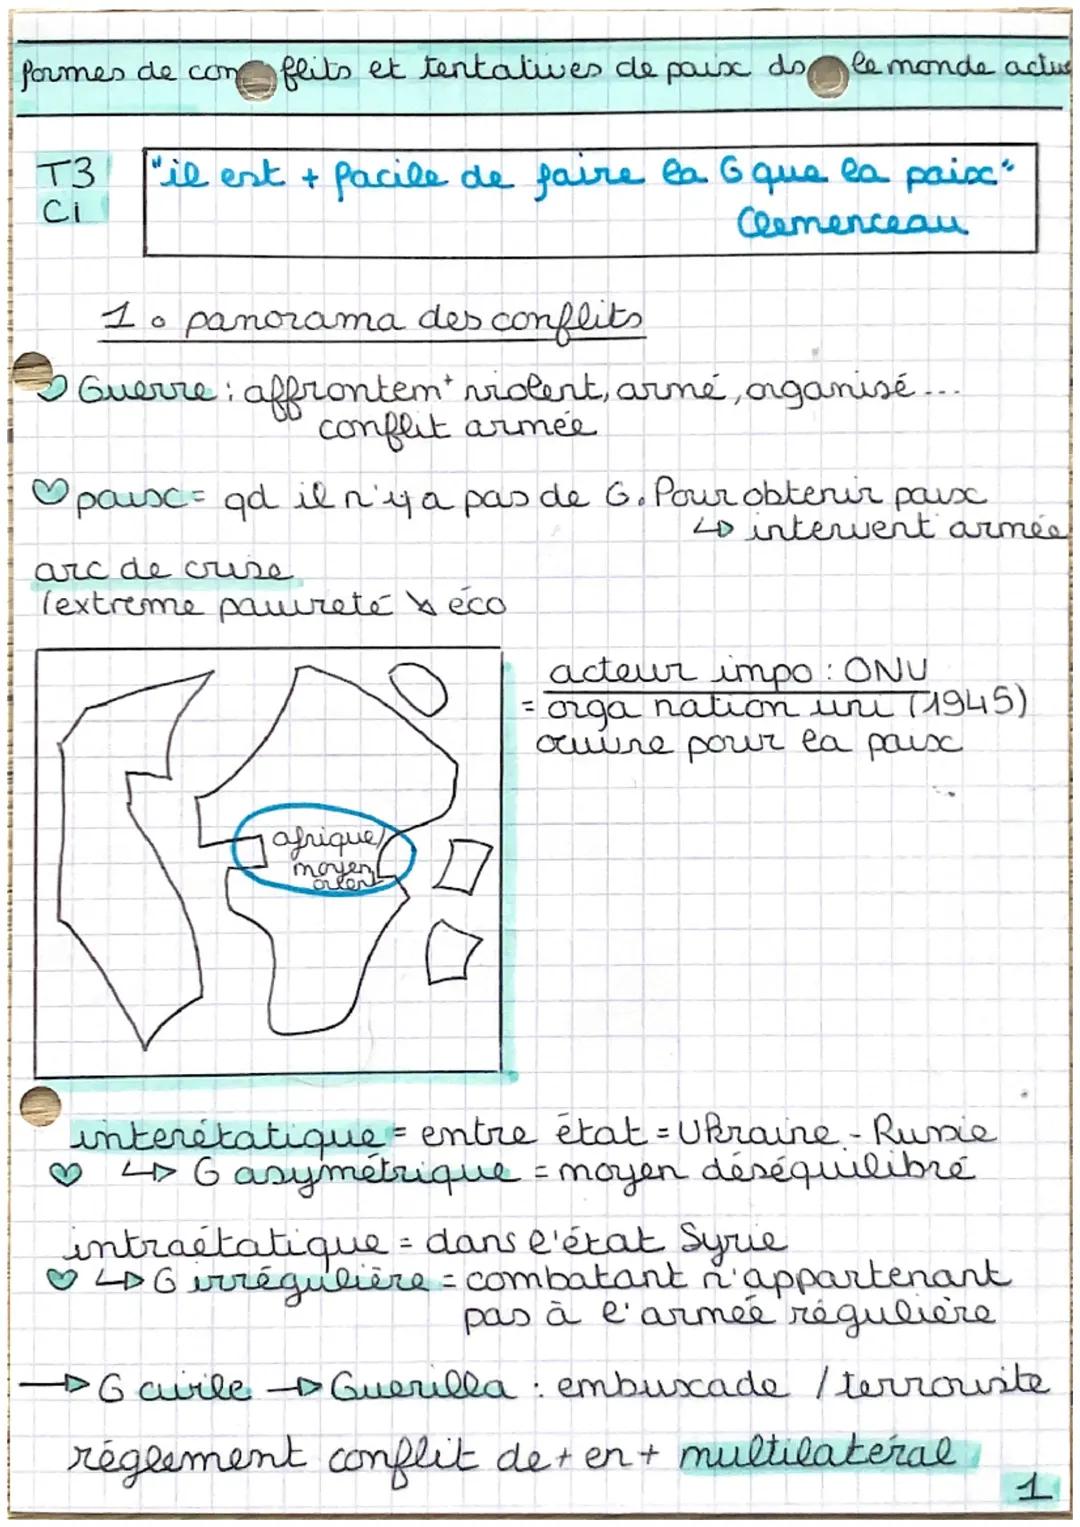 formes de conflits et tentatives de paix ds le monde actue
T3
C1
"il est + facile de faire la G que la paix"
Clemenceau
1. panorama des conflits
Guerre : affrontem⁺ violent, armé, organisé...
conflit armée
paix = qd il n'y a pas de G. Pour obtenir paix
↳ intervent° armée
arc de crise
(extreme pauvreté ↘ éco
acteur impo : ONU
= orga nation uni (1945)
œuvre pour la paix
afrique/
moyen
orient
interétatique = entre état = Ukraine - Russie
↳ G asymétrique = moyen déséquilibré
intraétatique = dans l'état Syrie
↳ G irrégulière = combatant n'appartenant
pas à l'armée régulière
→ G civile → Guerilla : embuscade / terroriste
réglement conflit de + en + multilatéral
1